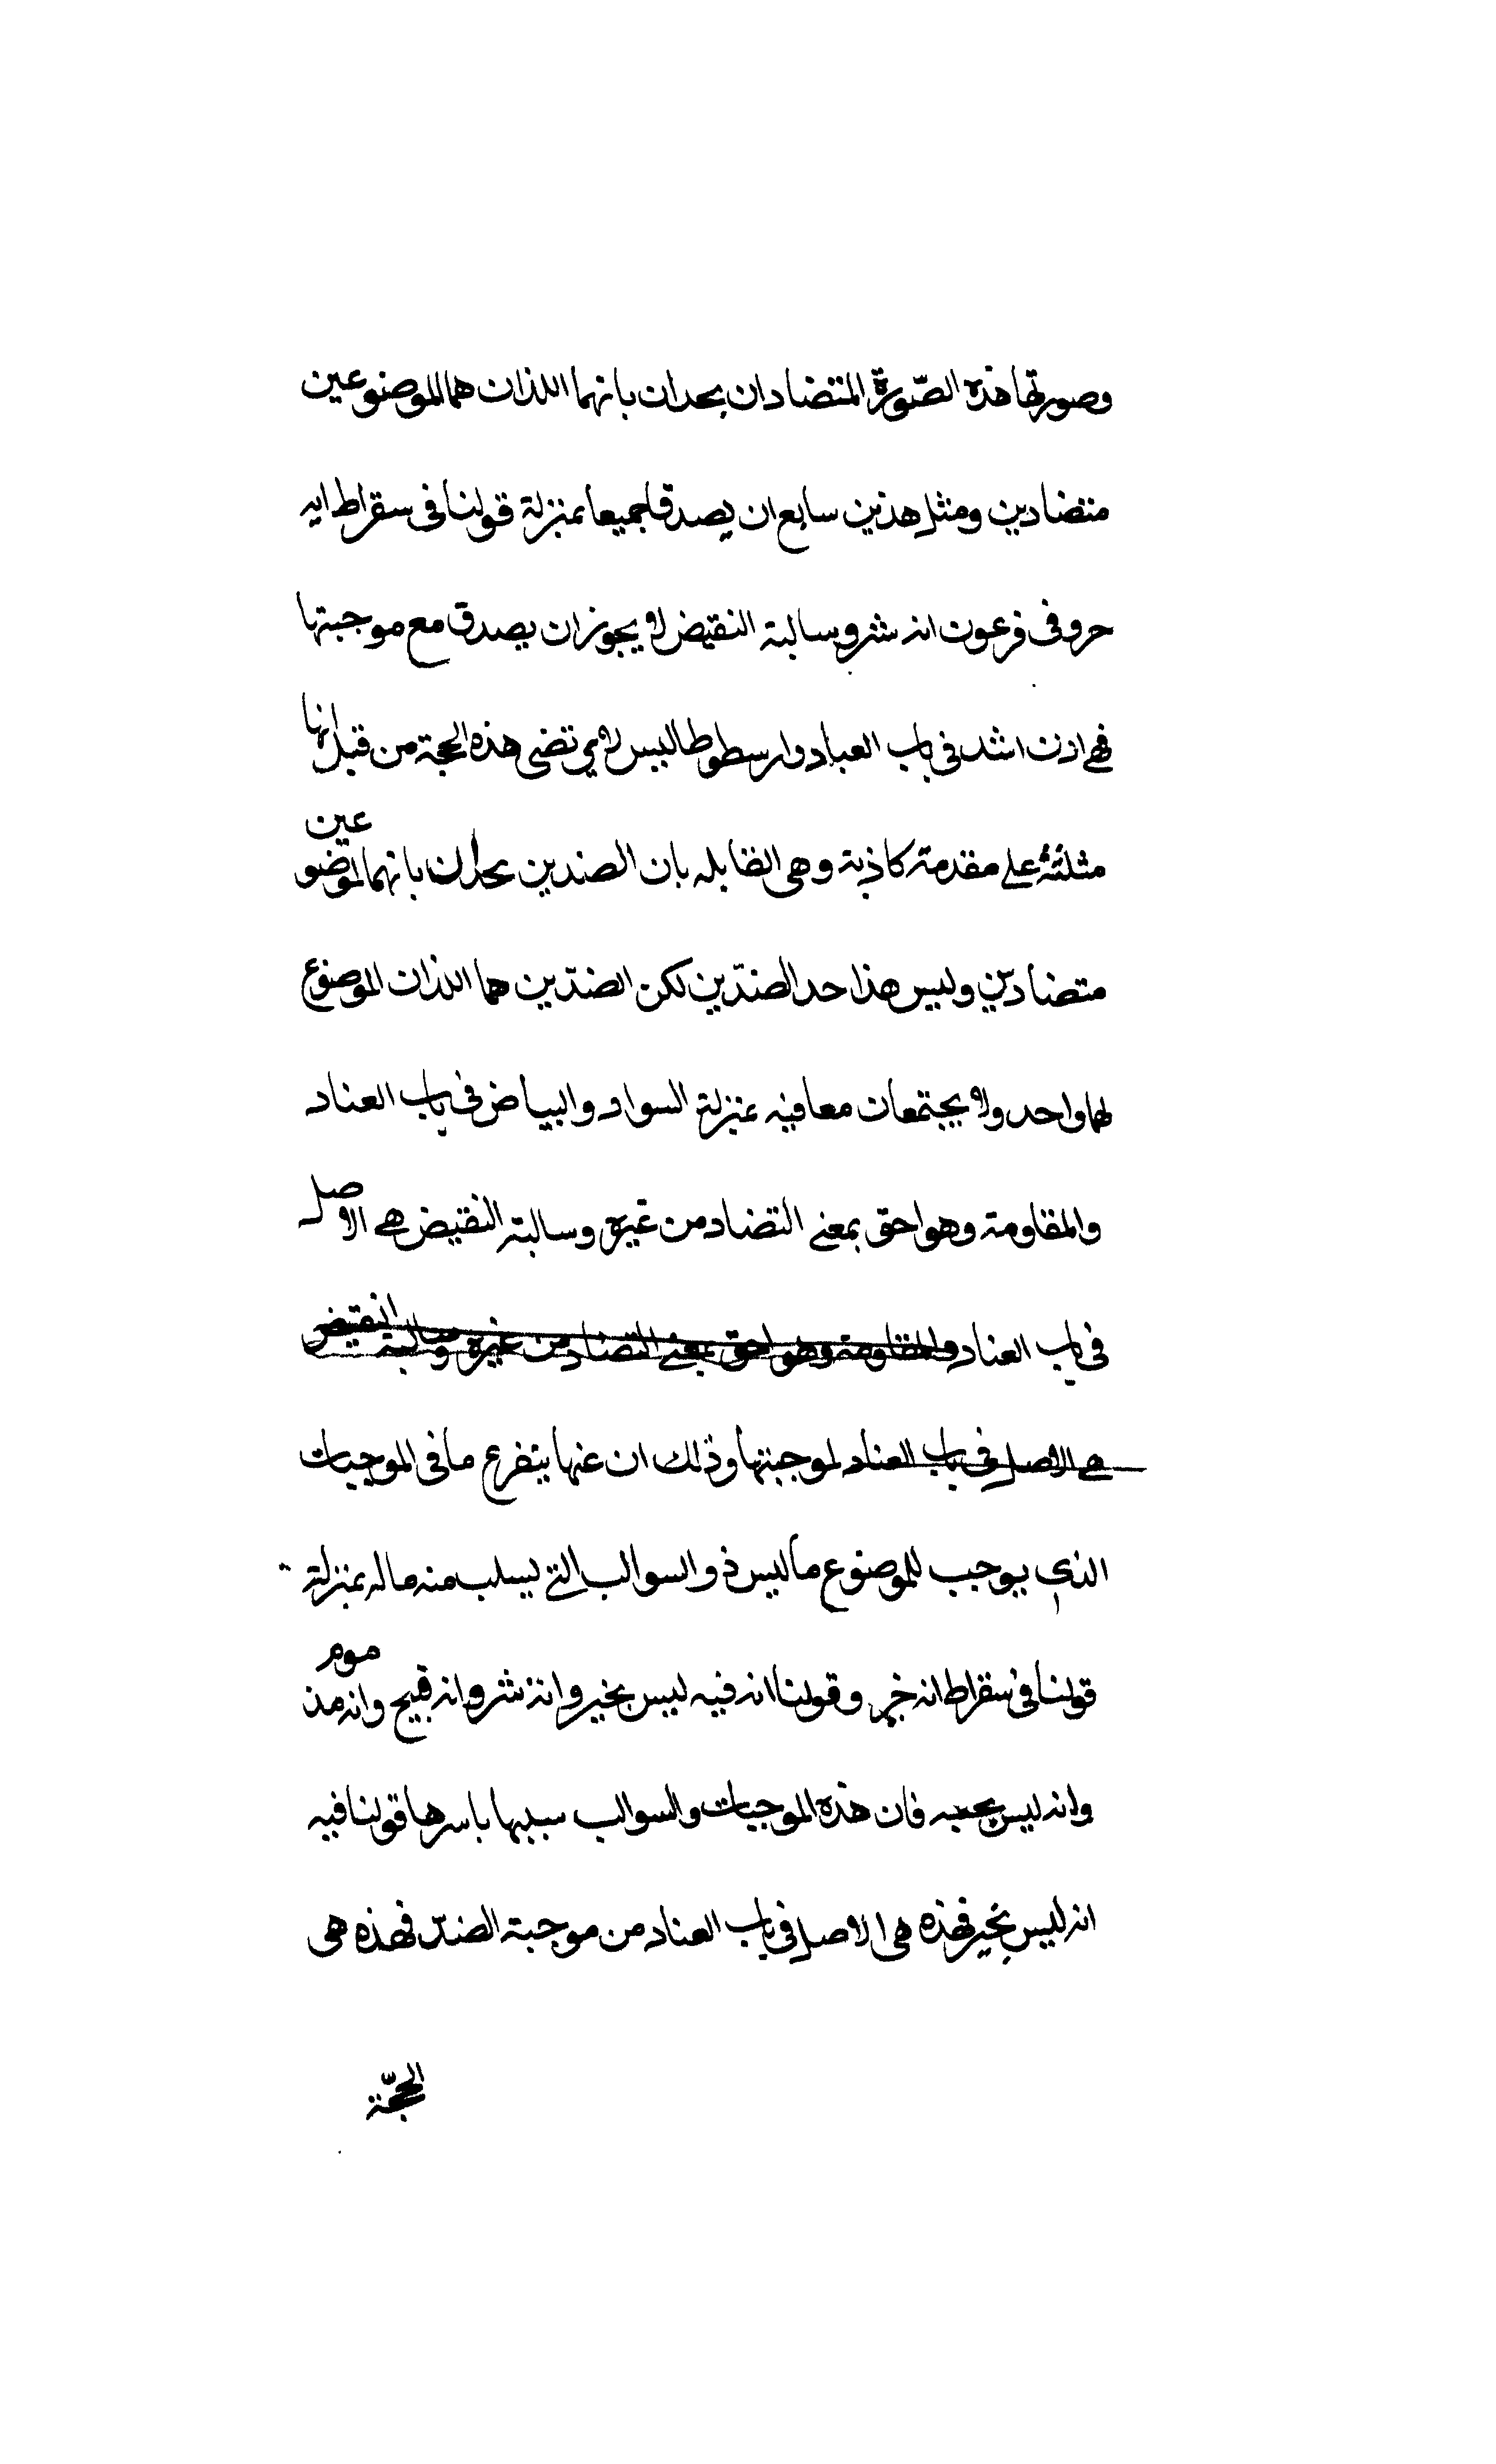 وصورتها هذه الصّورة المتضادان يحدان بانهما اللذان هما للموضوعين
متضادين ومثل هذين سايع ان يصدقا جميعا بمنزلة قولنا فى سقراط انه
حر وفى فرعون انه شر وسالبة النقيض لا يجوز ان يصدق مع موجبتها
فهى اذن اشد فى باب العباد وارسطوطاليس لا يرتضى هذه الحجة من قبل انها
على مقدمة كاذبة وهى القايله بان الضدين يحدان بانهما لموضوعين
متضادين وليس هذا حد الضدّين لكن الضدّين هما اللذان الموضوع
لهما واحد ولا يجتمعان معا فيه بمنزلة السواد والبياض فى باب العناد
والمقاومة وهو احق بمعنى التضاد من غيره وسالبة النقيض هى الاصل
فى باب العناد والمقاومة وهو احق بمعنى التضاد من غيره وسالبة النقيض
هى الاصل فى باب العناد لموجبتها وذلك ان عنها يتفرع ما فى الموجبات
الذى يوجب للموضوع ما ليس ذ والسوالب التى يسلب منه ما له بمنزلة
قولنا فى سقراط انه خير وقولنا انه فيه ليس بخير وانه شر وانه قبيح وانه مذموم
وانه ليس فان هذه الموجبات والسوالب سببها باسرها قولنا فيه
انه ليس بخير فهذه هى الاصل فى باب العناد من موجبة الضدّ فهذه هى
الحجّة